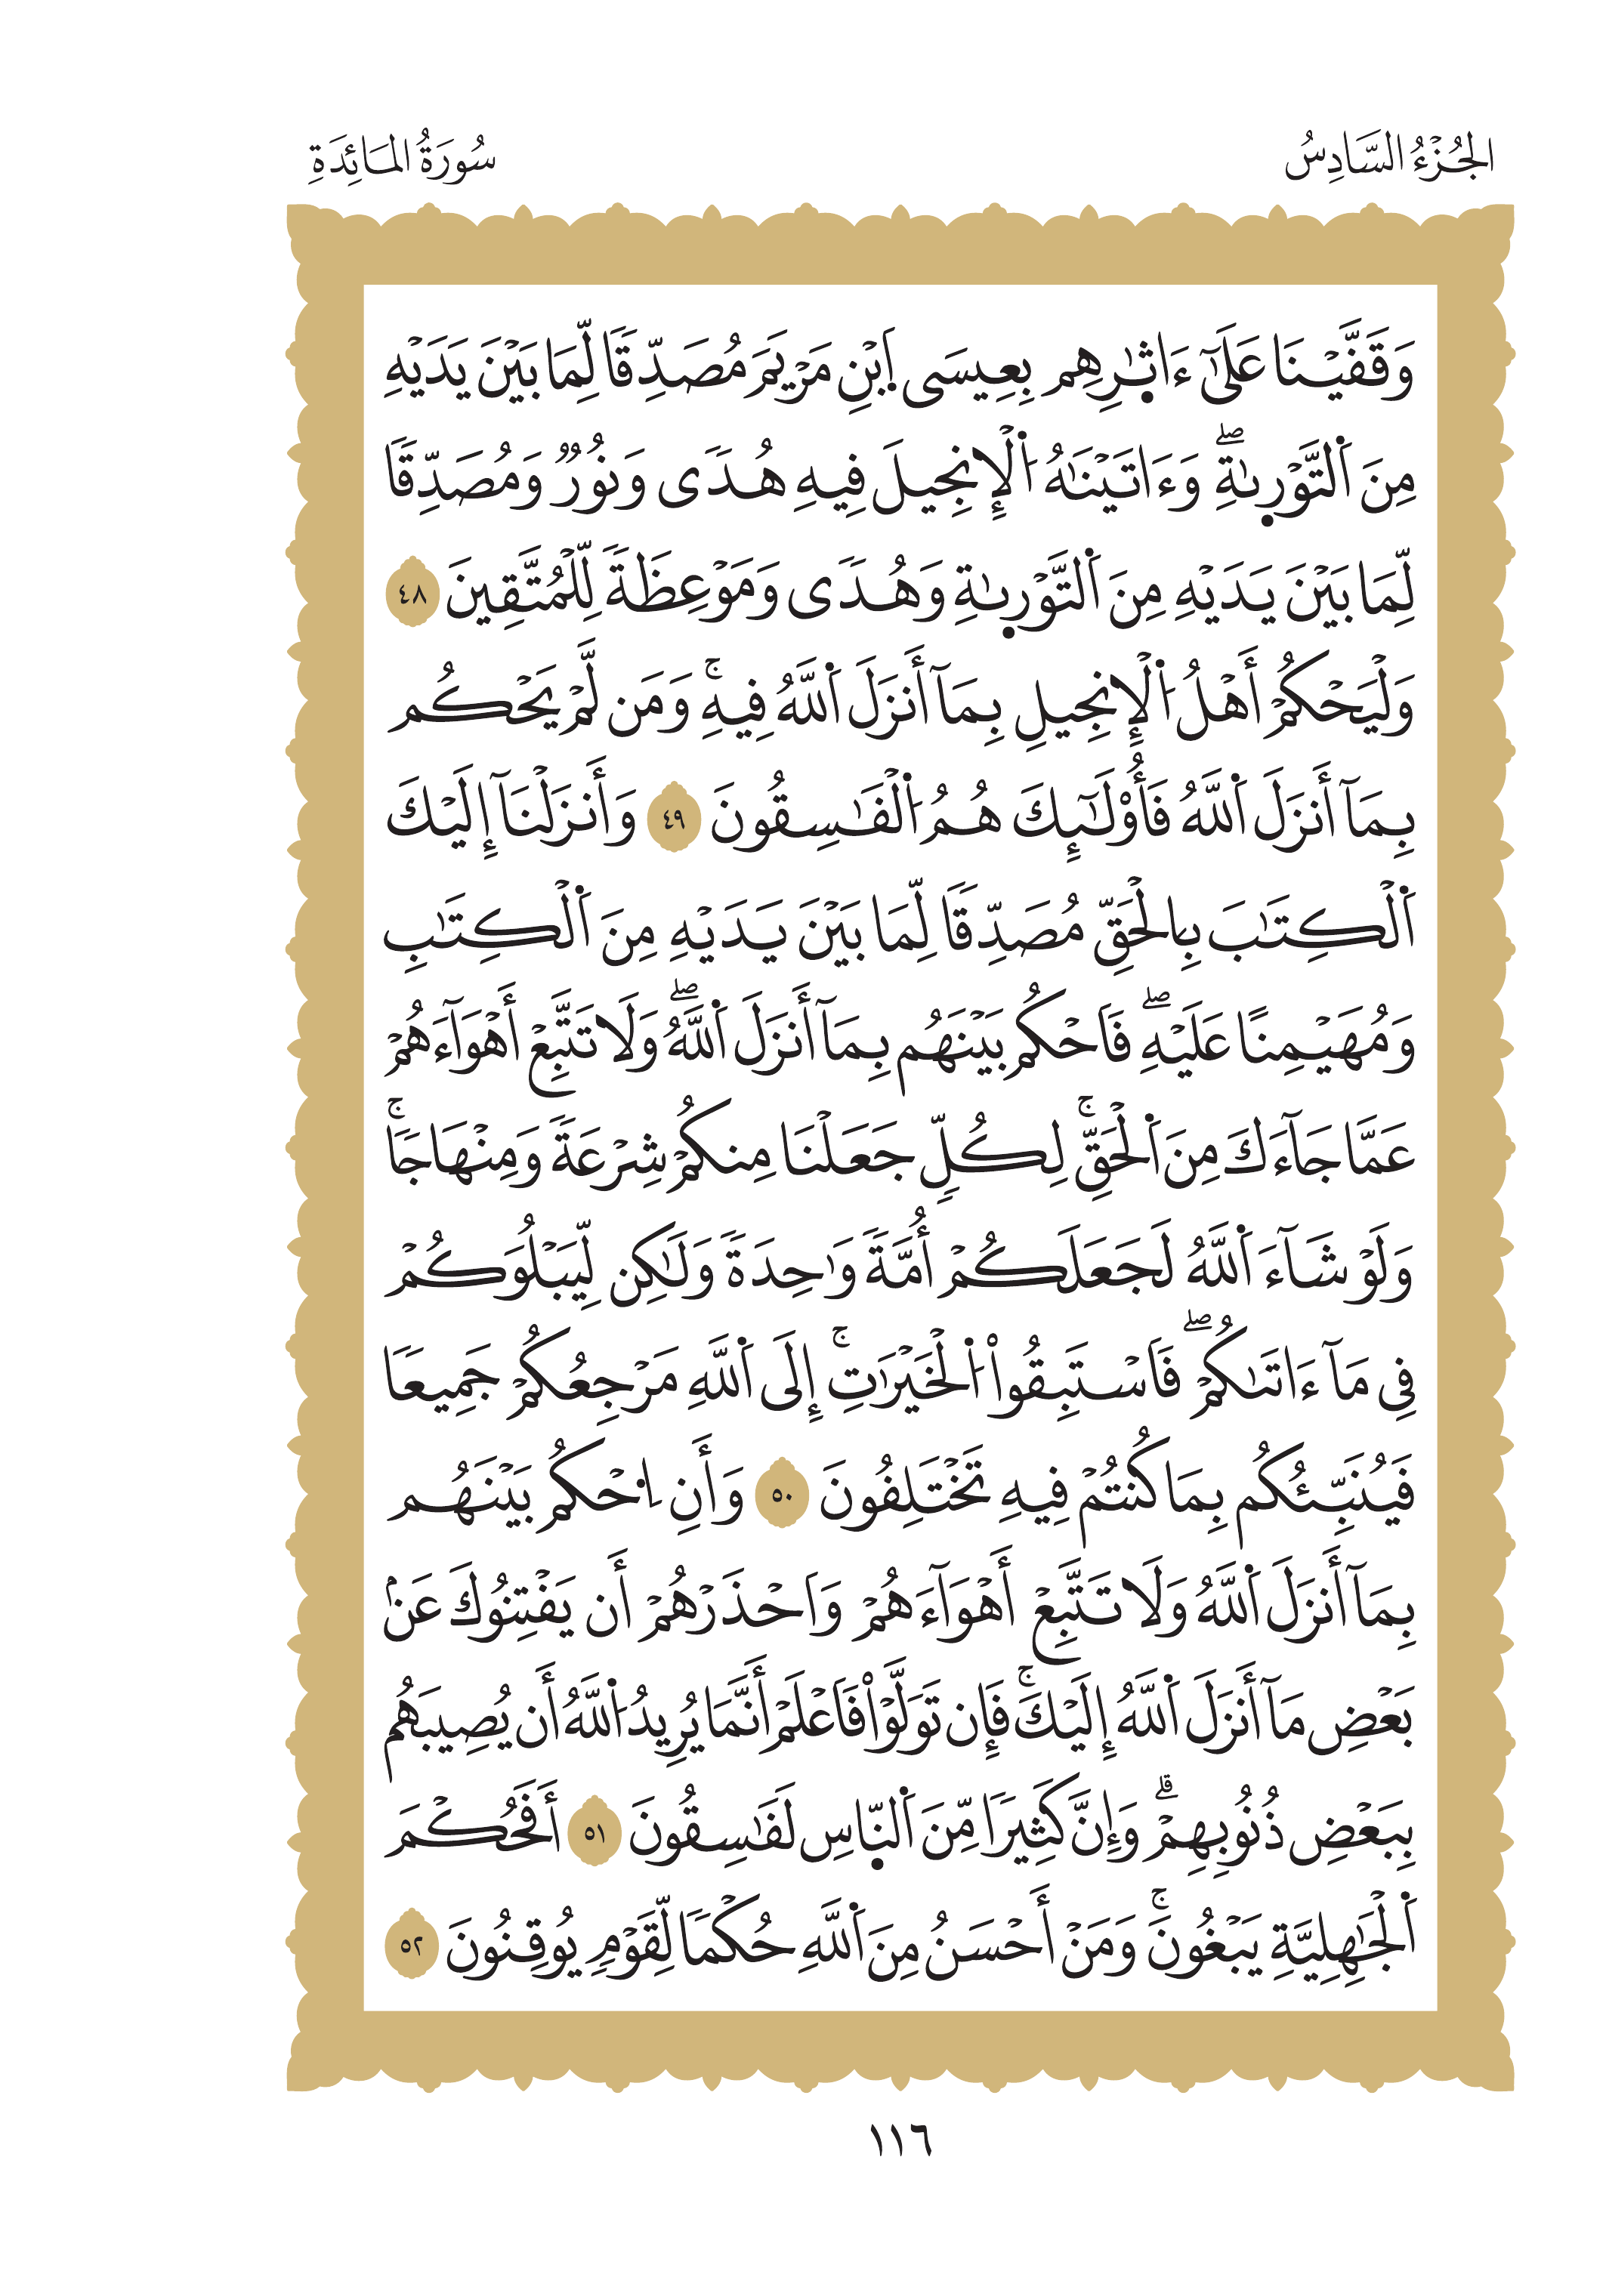 الجُزْءُ السَّادِسُ
سُورَةُ المَائِدَةِ
وَقَفَّيْنَا عَلَىٰٓ ءَاثٰ۪رِهِم بِعِيسَى اَ۪بْنِ مَرْيَمَ مُصَدِّقاً لِّمَا بَيْنَ يَدَيْهِ
مِنَ اَ۬لتَّوْر۪ىٰةِۖ وَءَاتَيْنَٰهُ اُ۬لْإِنجِيلَ فِيهِ هُدىً وَنُورٌ وَمُصَدِّقاً
لِّمَا بَيْنَ يَدَيْهِ مِنَ اَ۬لتَّوْر۪ىٰةِ وَهُدىً وَمَوْعِظَةً لِّلْمُتَّقِينَ ٤٨
وَلْيَحْكُمْ أَهْلُ اُ۬لْإِنجِيلِ بِمَآ أَنزَلَ اَ۬للَّهُ فِيهِۚ وَمَن لَّمْ يَحْكُم
بِمَآ أَنزَلَ اَ۬للَّهُ فَأُوْلَٰٓئِكَ هُمُ اُ۬لْفَٰسِقُونَ ٤٩ وَأَنزَلْنَآ إِلَيْكَ
اَ۬لْكِتَٰبَ بِالْحَقِّ مُصَدِّقاً لِّمَا بَيْنَ يَدَيْهِ مِنَ اَ۬لْكِتَٰبِ
وَمُهَيْمِناً عَلَيْهِۖ فَاَحْكُم بَيْنَهُم بِمَآ أَنزَلَ اَ۬للَّهُۖ وَلَا تَتَّبِعْ أَهْوَآءَهُمْ
عَمَّا جَآءَكَ مِنَ اَ۬لْحَقِّۚ لِكُلٍّ جَعَلْنَا مِنكُمْ شِرْعَةً وَمِنْهَاجاًۚ
وَلَوْ شَآءَ اَ۬للَّهُ لَجَعَلَكُمْ أُمَّةً وَٰحِدَةً وَلَٰكِن لِّيَبْلُوَكُمْ
فِي مَآ ءَاتَىٰكُمْۖ فَاَسْتَبِقُواْ اُ۬لْخَيْرَٰتِۚ إِلَى اَ۬للَّهِ مَرْجِعُكُمْ جَمِيعاً
فَيُنَبِّئُكُم بِمَا كُنتُمْ فِيهِ تَخْتَلِفُونَ ٥٠ وَأَنِ اِ۟حْكُم بَيْنَهُم
بِمَآ أَنزَلَ اَ۬للَّهُ وَلَا تَتَّبِعْ أَهْوَآءَهُمْ وَاَحْذَرْهُمْ أَن يَفْتِنُوكَ عَنۢ
بَعْضِ مَآ أَنزَلَ اَ۬للَّهُ إِلَيْكَۚ فَإِن تَوَلَّوْاْ فَاَعْلَمْ أَنَّمَا يُرِيدُ اُ۬للَّهُ أَن يُصِيبَهُم
بِبَعْضِ ذُنُوبِهِمْۗ وَإِنَّ كَثِيراً مِّنَ اَ۬لنّ۪اسِ لَفَٰسِقُونَ ٥١ أَفَحُكْمَ
اَ۬لْجَٰهِلِيَّةِ يَبْغُونَۚ وَمَنْ أَحْسَنُ مِنَ اَ۬للَّهِ حُكْماً لِّقَوْمٍ يُوقِنُونَ ٥٢
١١٦